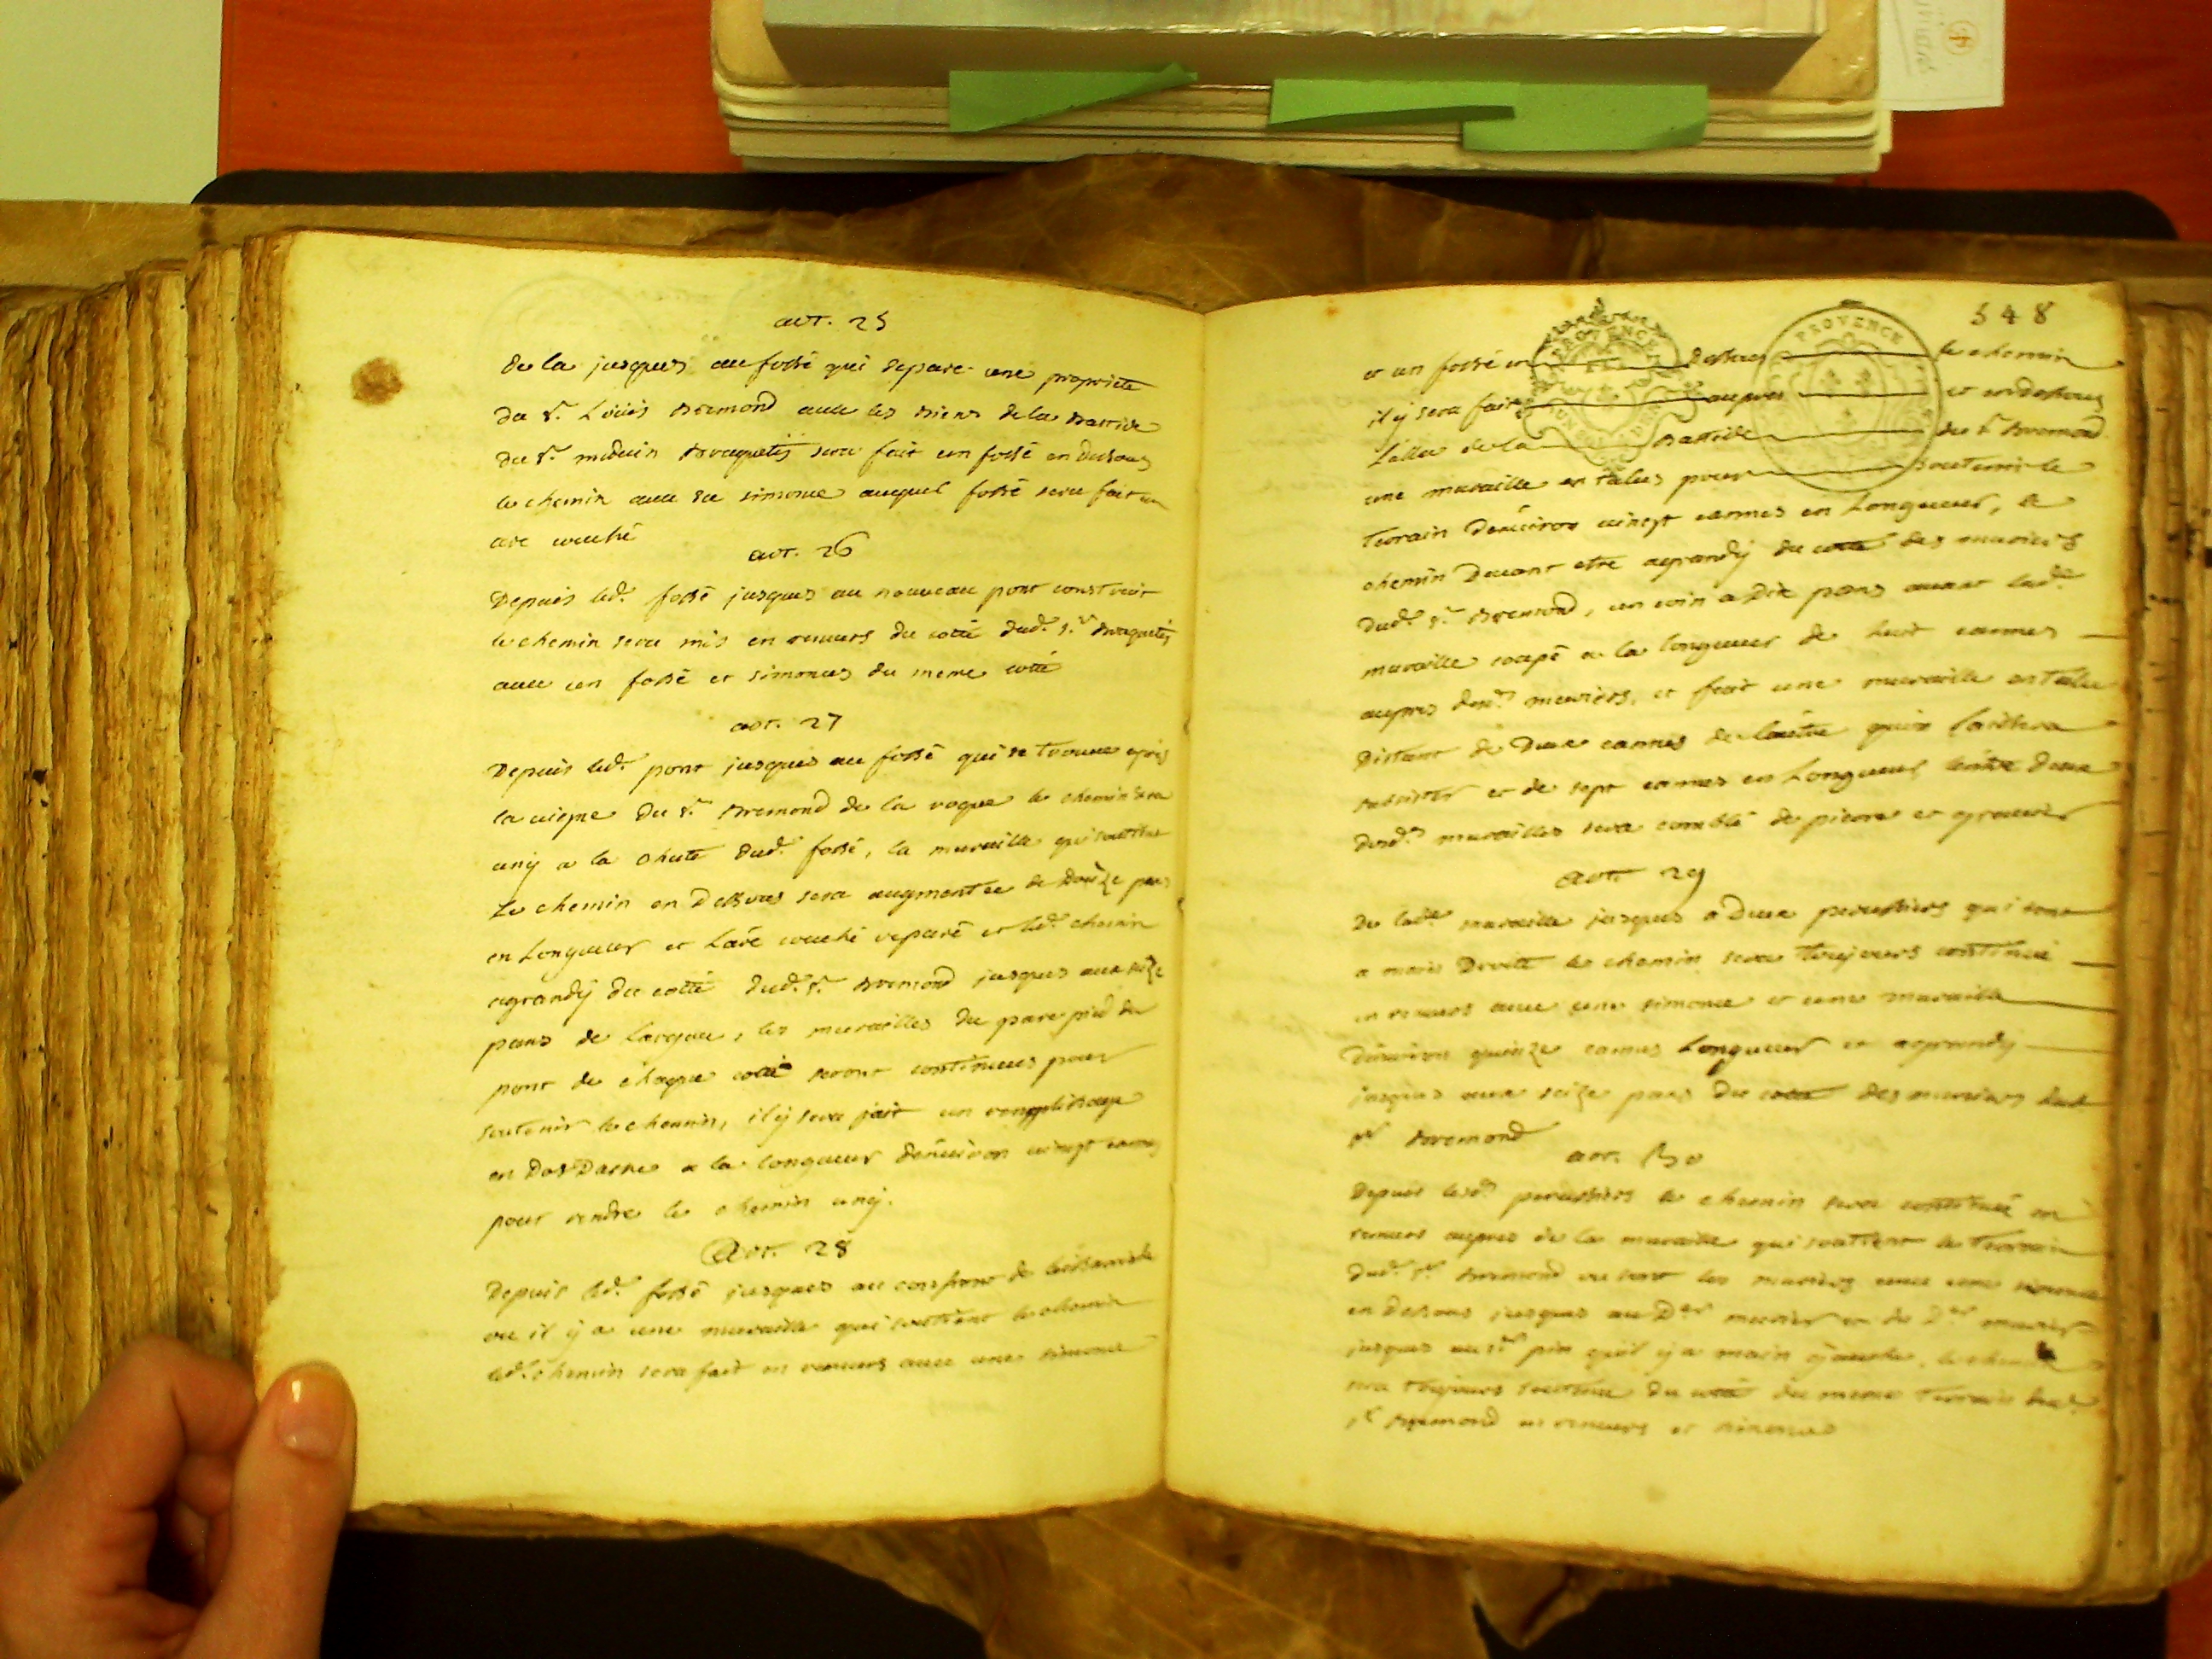 art. 25
de la jusques au fossé qui separe une proprieté
du Sr. Loüis Bremond avec les biens de la Bastide
du Sr. medecin Braquetÿ sera fait un fossé en dessous
le chemin avec sa simosue auquel fossé sera fait un
arc couché
art. 26
Depuis led. fossé jusques au nouveau pont construit
le chemin sera mis en renvers du cotté dud. Sr. Braquetÿ
avec un fossé et simosues du meme cotté
art. 27
Depuis led. pont jusques au fossé qui se trouve apres
la vigne du Sr. Bremond de la roque le chemin sera
unÿ a la chute dud. fossé, la muraille qui soutient
Le chemin en Dessous sera augmentée de Douze pans
en Longueur et Larc couché reparé et led. chemin
agrandÿ du cotté dud. Sr. Bremond jusques aux seize
pans de Largeur, les murailles du pare pied du
pont de chaque cotté seront continuées pour
soutenir le chemin, il ÿ sera fait un remplissage
en Dos Dasne a la longueur denviron vingt cannes
pour rendre le chemin unÿ.
Art. 28
Depuis led. fossé jusques au confront de
ou il ÿ a une muraille qui soutient le chemin
led. chemin sera fait en renvers avec une simosue
548
PROVENCE
PROVENCE
et un fossé en Dessous le chemin
il ÿ sera fait aupres et en dessous
Laller de la Bastide du Sr Bremond
une muraille en talus pour soutenir le
terrain Denviron vingt cannes en Longueur, le
chemin Devant etre agrandÿ du cotté des muriers
dud. Sr. Bremond, un coin a Dix pans avant lade
muraille coupé a la longueur de huit cannes
aupres desd. muriers, et fait une muraille en talus
Distant de Deux cannes de lautre quon laissera
subsister et de sept cannes en Longueur lentre deux
desd. murailles sera comblé de pierre et gravier
Art. 29
De lade muraille jusques a Deux perussiers qui sont
a main Droitte le chemin sera toujours continué
en renvers avec une simosue et une muraille
Denviron quinze cannes Longueur et agrandÿ
jusques aux seize pans du cotté des muriers dud.
Sr Bremond
art. 30
Depuis lesd. perussiers le chemin sera continué en
renvers aupres de la muraille qui soutient le terrain
dud. Sr. Bremond ou sont les muriers avec une simosue
en dessous jusques au Der murier et du Der murier
jusques au pin quil ÿ a main gauche, le chemin
sera toujours soutenu du cotté du meme terrain dud.
Sr Bremond en renvers et simosue